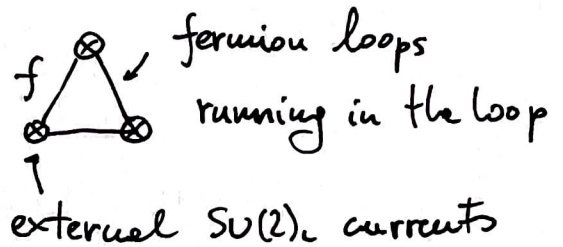 fermion loops
f
running in the loop
external SU(2)L currents